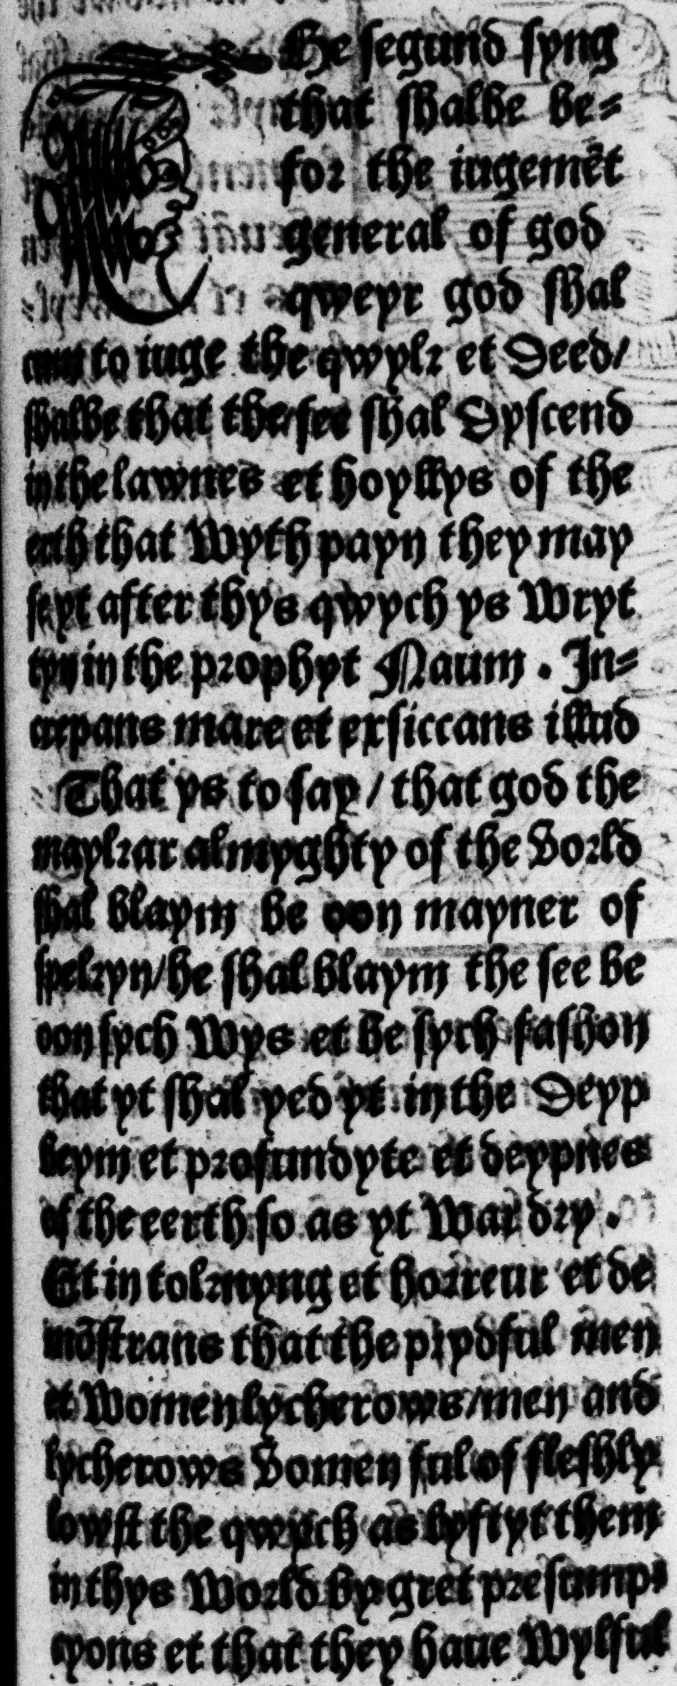 THe segund syng
that shalbe be-
for the iugemēt
general of god
qweyr god shal
cum to iuge the qwylz et deed/
shalbe that the see shal dyscend
in the lawnes et hoyllys of the
erth that wyth payn they may
seyt after thys qwych ys wryt
tyn in the prophyt Naum. In-
crepans mare et exsiccans illud
That ys to say/ that god the
maylzar almyghty of the vorld
shal blaym be oon mayner of
spelzyn/he shal blaym the see be
oon sych wys et be sych fashon
that yt shal yed yt in the deyp
beym et profundyte et deypnes
of the eerth so as yt war dry.
Et in tolznyng et horreur et de
mōstrans that the prydful men
et women lycherows/men and
lycherows vomen ful of fleshly
lowst the qwych as lyftyt them
in thys world by gret presump-
cyons et that they haue wylful